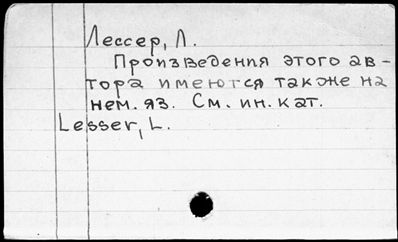 Лессер, Л.
Произведения этого ав-
тора имеются также на
нем. яз. См. ин. кат.
Lesser, L.